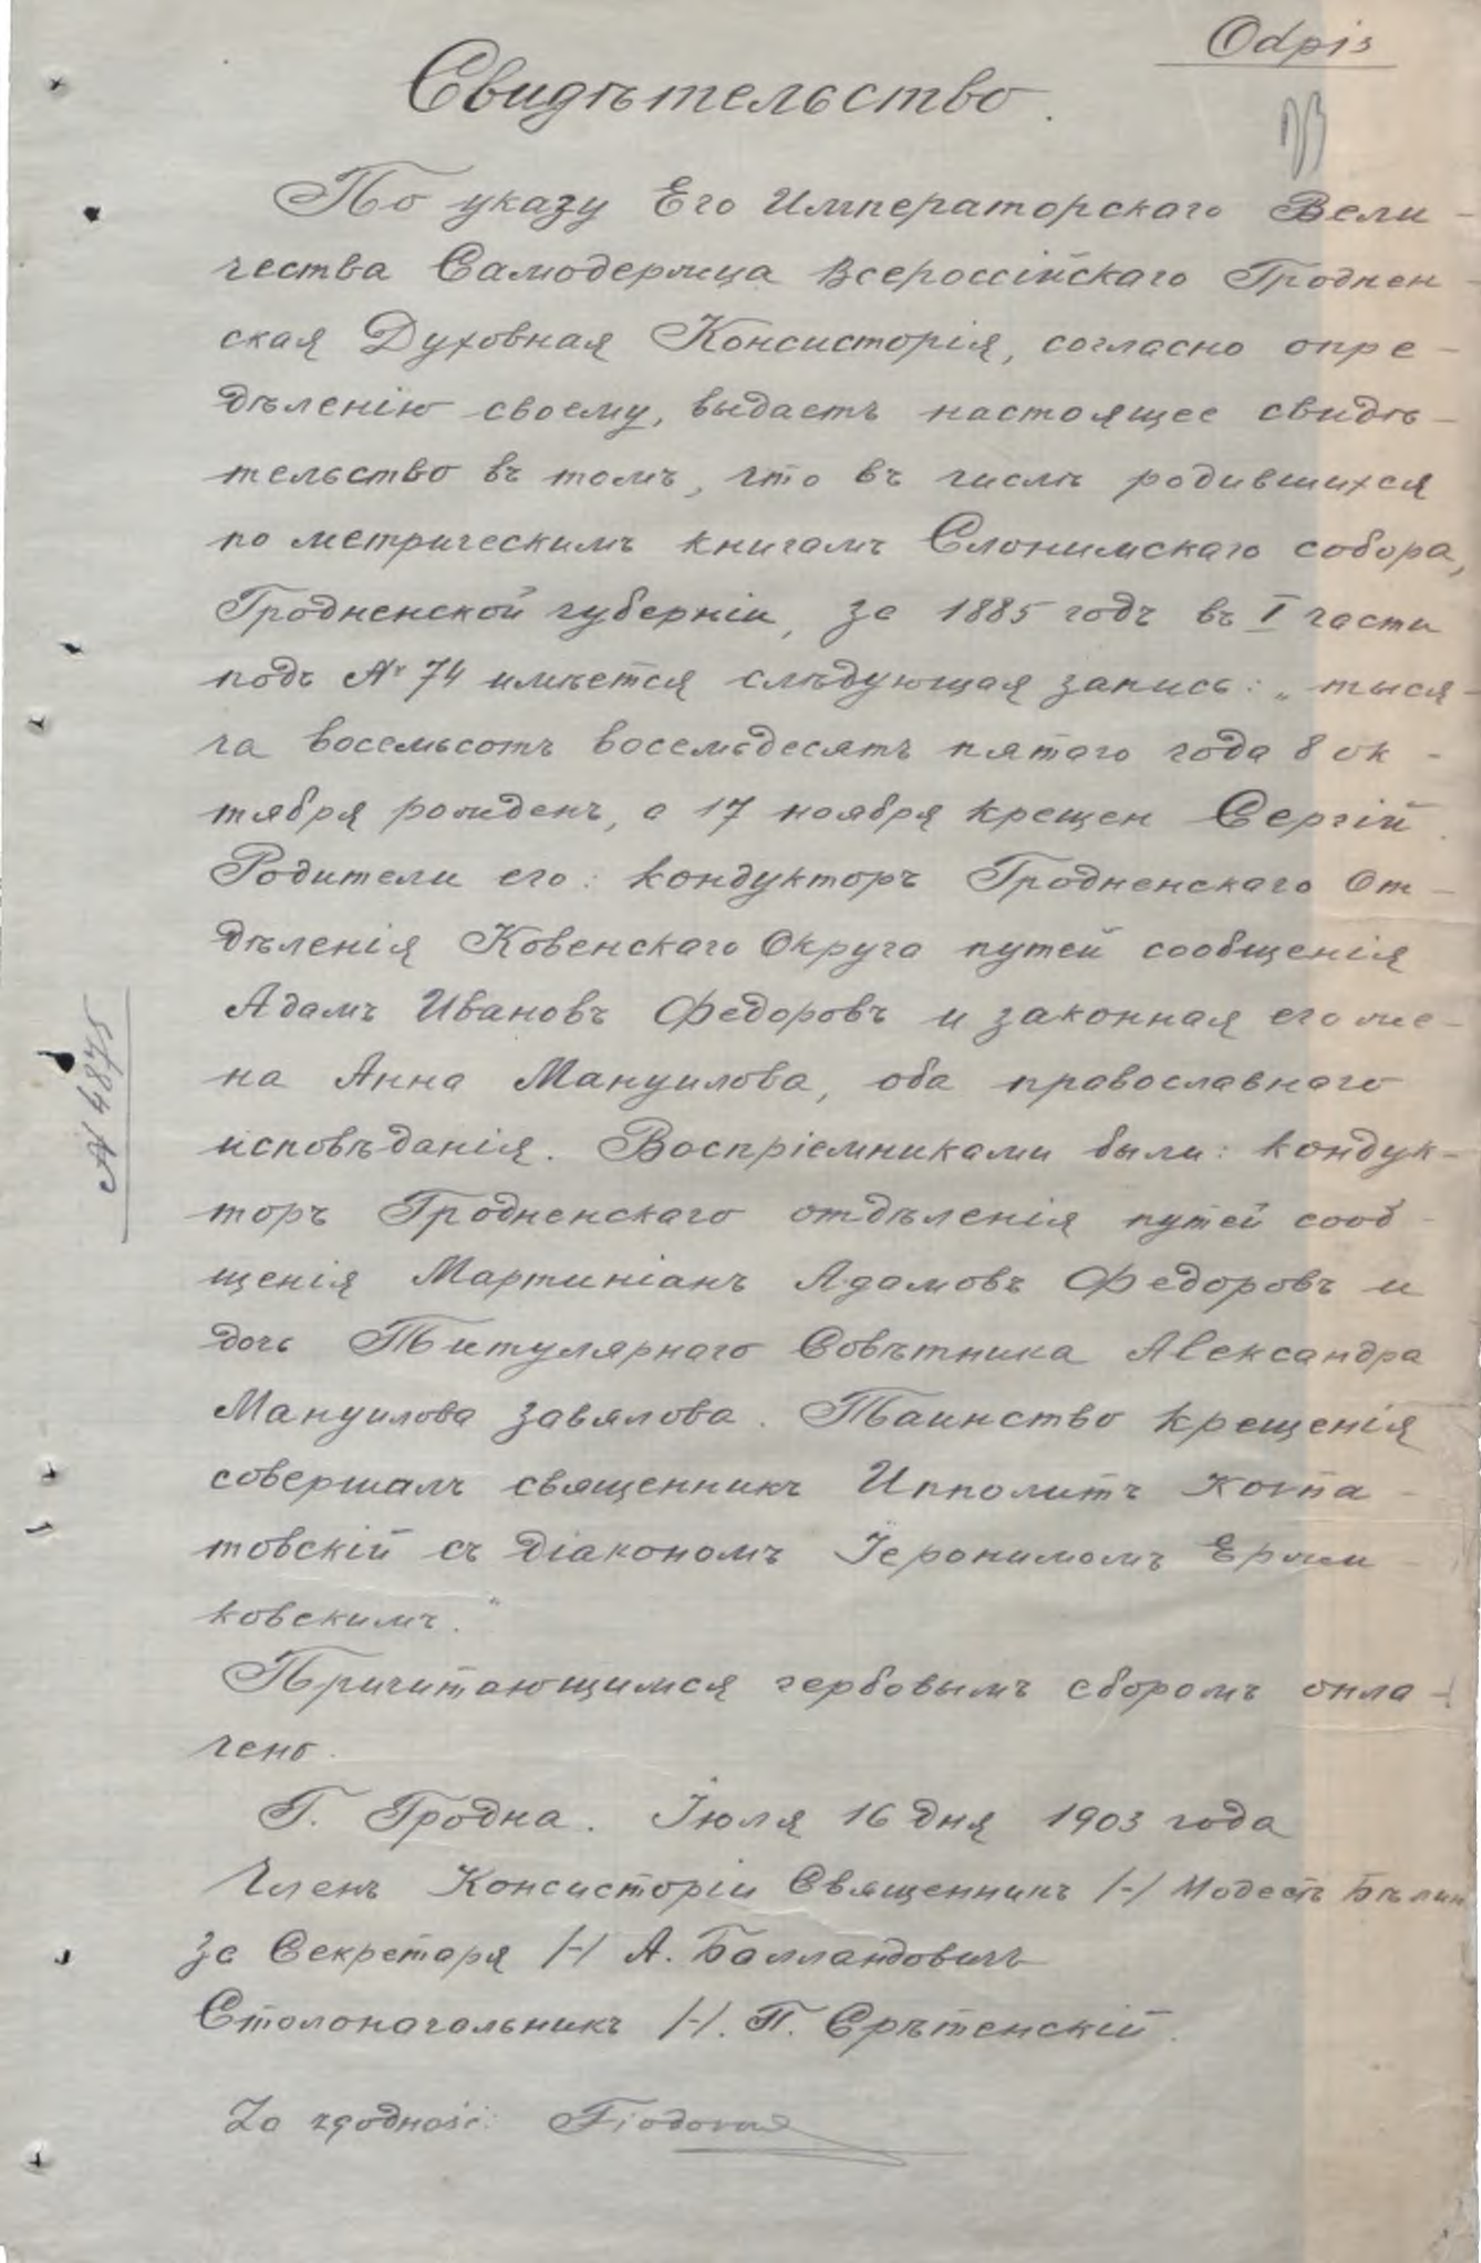 Odpis
Свидѣтельство.
По указу Его Императорскаго Вели-
чества Самодержца Всероссійскаго Гроднен-
ская Духовная Консисторія, согласно опре-
дѣленію своему, выдаетъ настоящее свидѣ-
тельство въ томъ, что въ числѣ родившихся
по метрическимъ книгамъ Слонимскаго собора,
Гродненской губерніи, за 1885 годъ въ I части
подъ № 74 имѣется слѣдующая запись: „тыся-
ча восемьсотъ восемьдесятъ пятаго года 8 ок-
тября рожденъ, а 17 ноября крещен Сергій.
Родители его: кондукторъ Гродненскаго От-
дѣленія Ковенскаго Округа путей сообщенія
Адамъ Ивановъ Федоровъ и законная его же-
на Анна Мануилова, оба православнаго
исповѣданія. Воспріемниками были: кондук-
торъ Гродненскаго отдѣленія путей сооб-
щенія Мартиніанъ Адамовъ Федоровъ и
дочь Титулярнаго Совѣтника Александра
Мануилова Завялова. Таинство крещенія
совершалъ священникъ Ипполитъ
товскій съ діакономъ Іеронимомъ Ержи-
ковскимъ."
Причитающимся гербовымъ сборомъ опла-
чено.
Г. Гродна. Іюля 16 дня 1903 года
Членъ Консисторіи Священникъ /-/ Модестъ
За Секретаря /-/ А. Балландовичъ
Столоначальникъ /-/. П. Срѣтенскій.
Za zgodność: Fiodorow
№ 4875